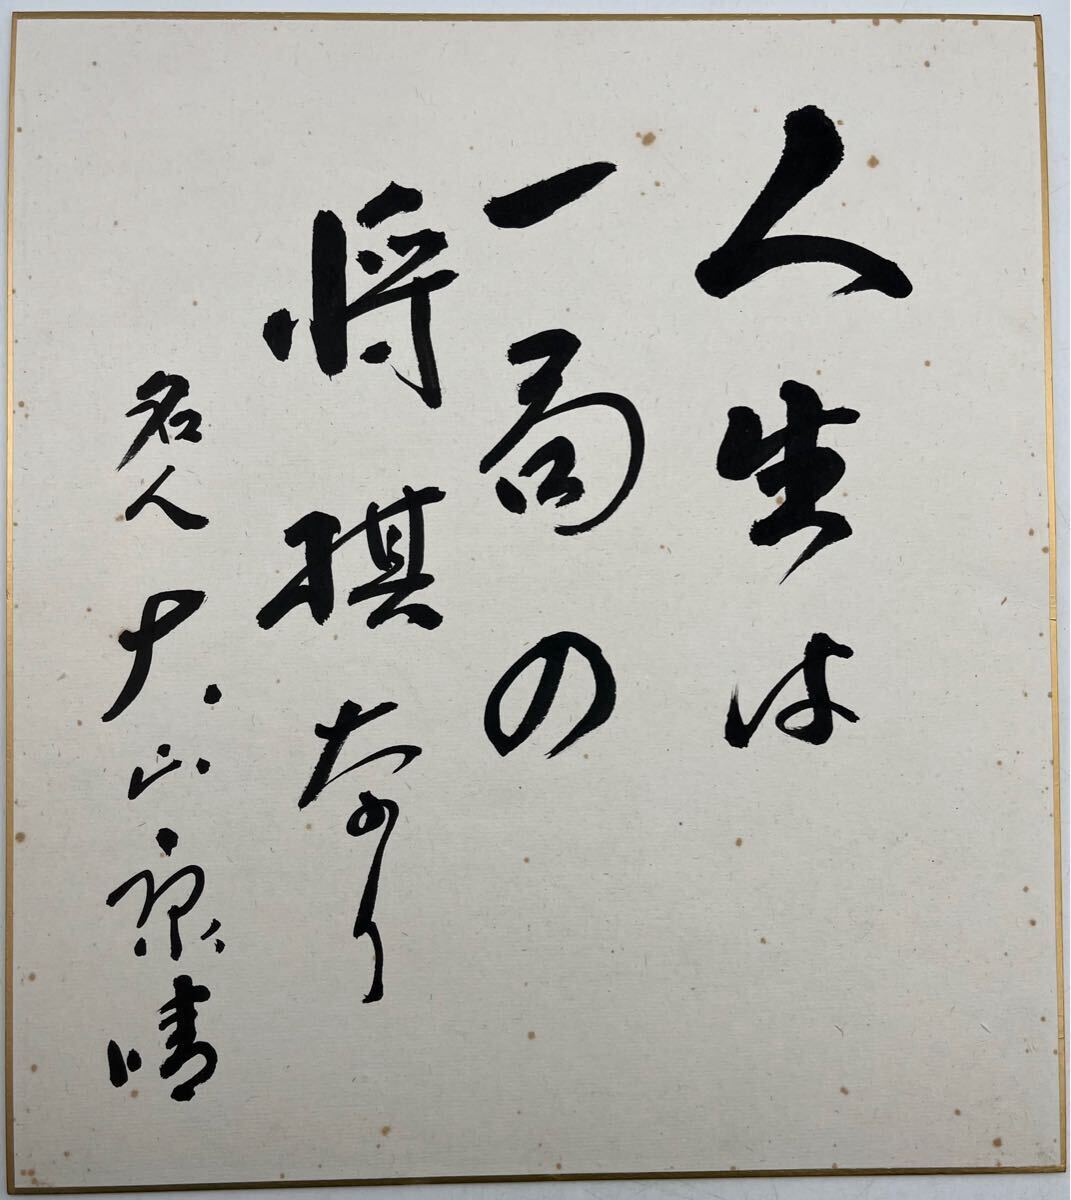 人生は
一局の
将棋なり
名人 大山康晴